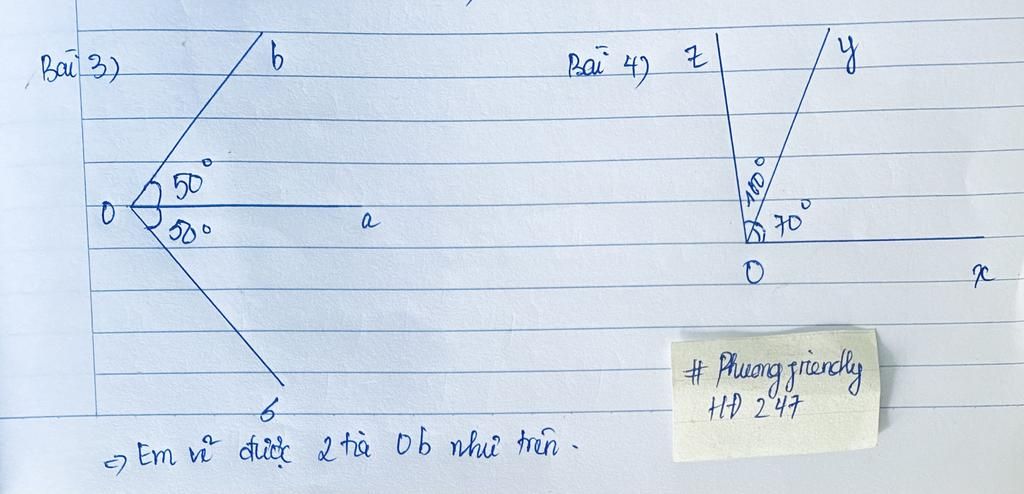 Bài 3)
b
50°
O
a
50°
b
=> Em vẽ được 2 tia Ob như trên.
Bài 4)
z
y
100°
70°
O
x
# Phuongfriendly
HĐ 247